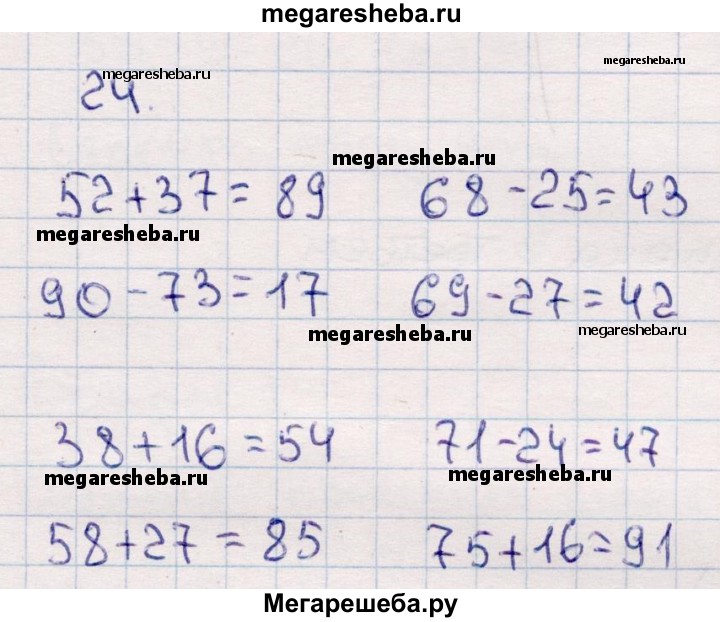 megaresheba.ru
megaresheba.ru
megaresheba.ru
24.
megaresheba.ru
52+37=89 68-25=43
megaresheba.ru
90-73=17 69-27=42
megaresheba.ru
megaresheba.ru
38+16=54 71-24=47
megaresheba.ru
megaresheba.ru
58+27=85 75+16=91
Мегарешеба.ру